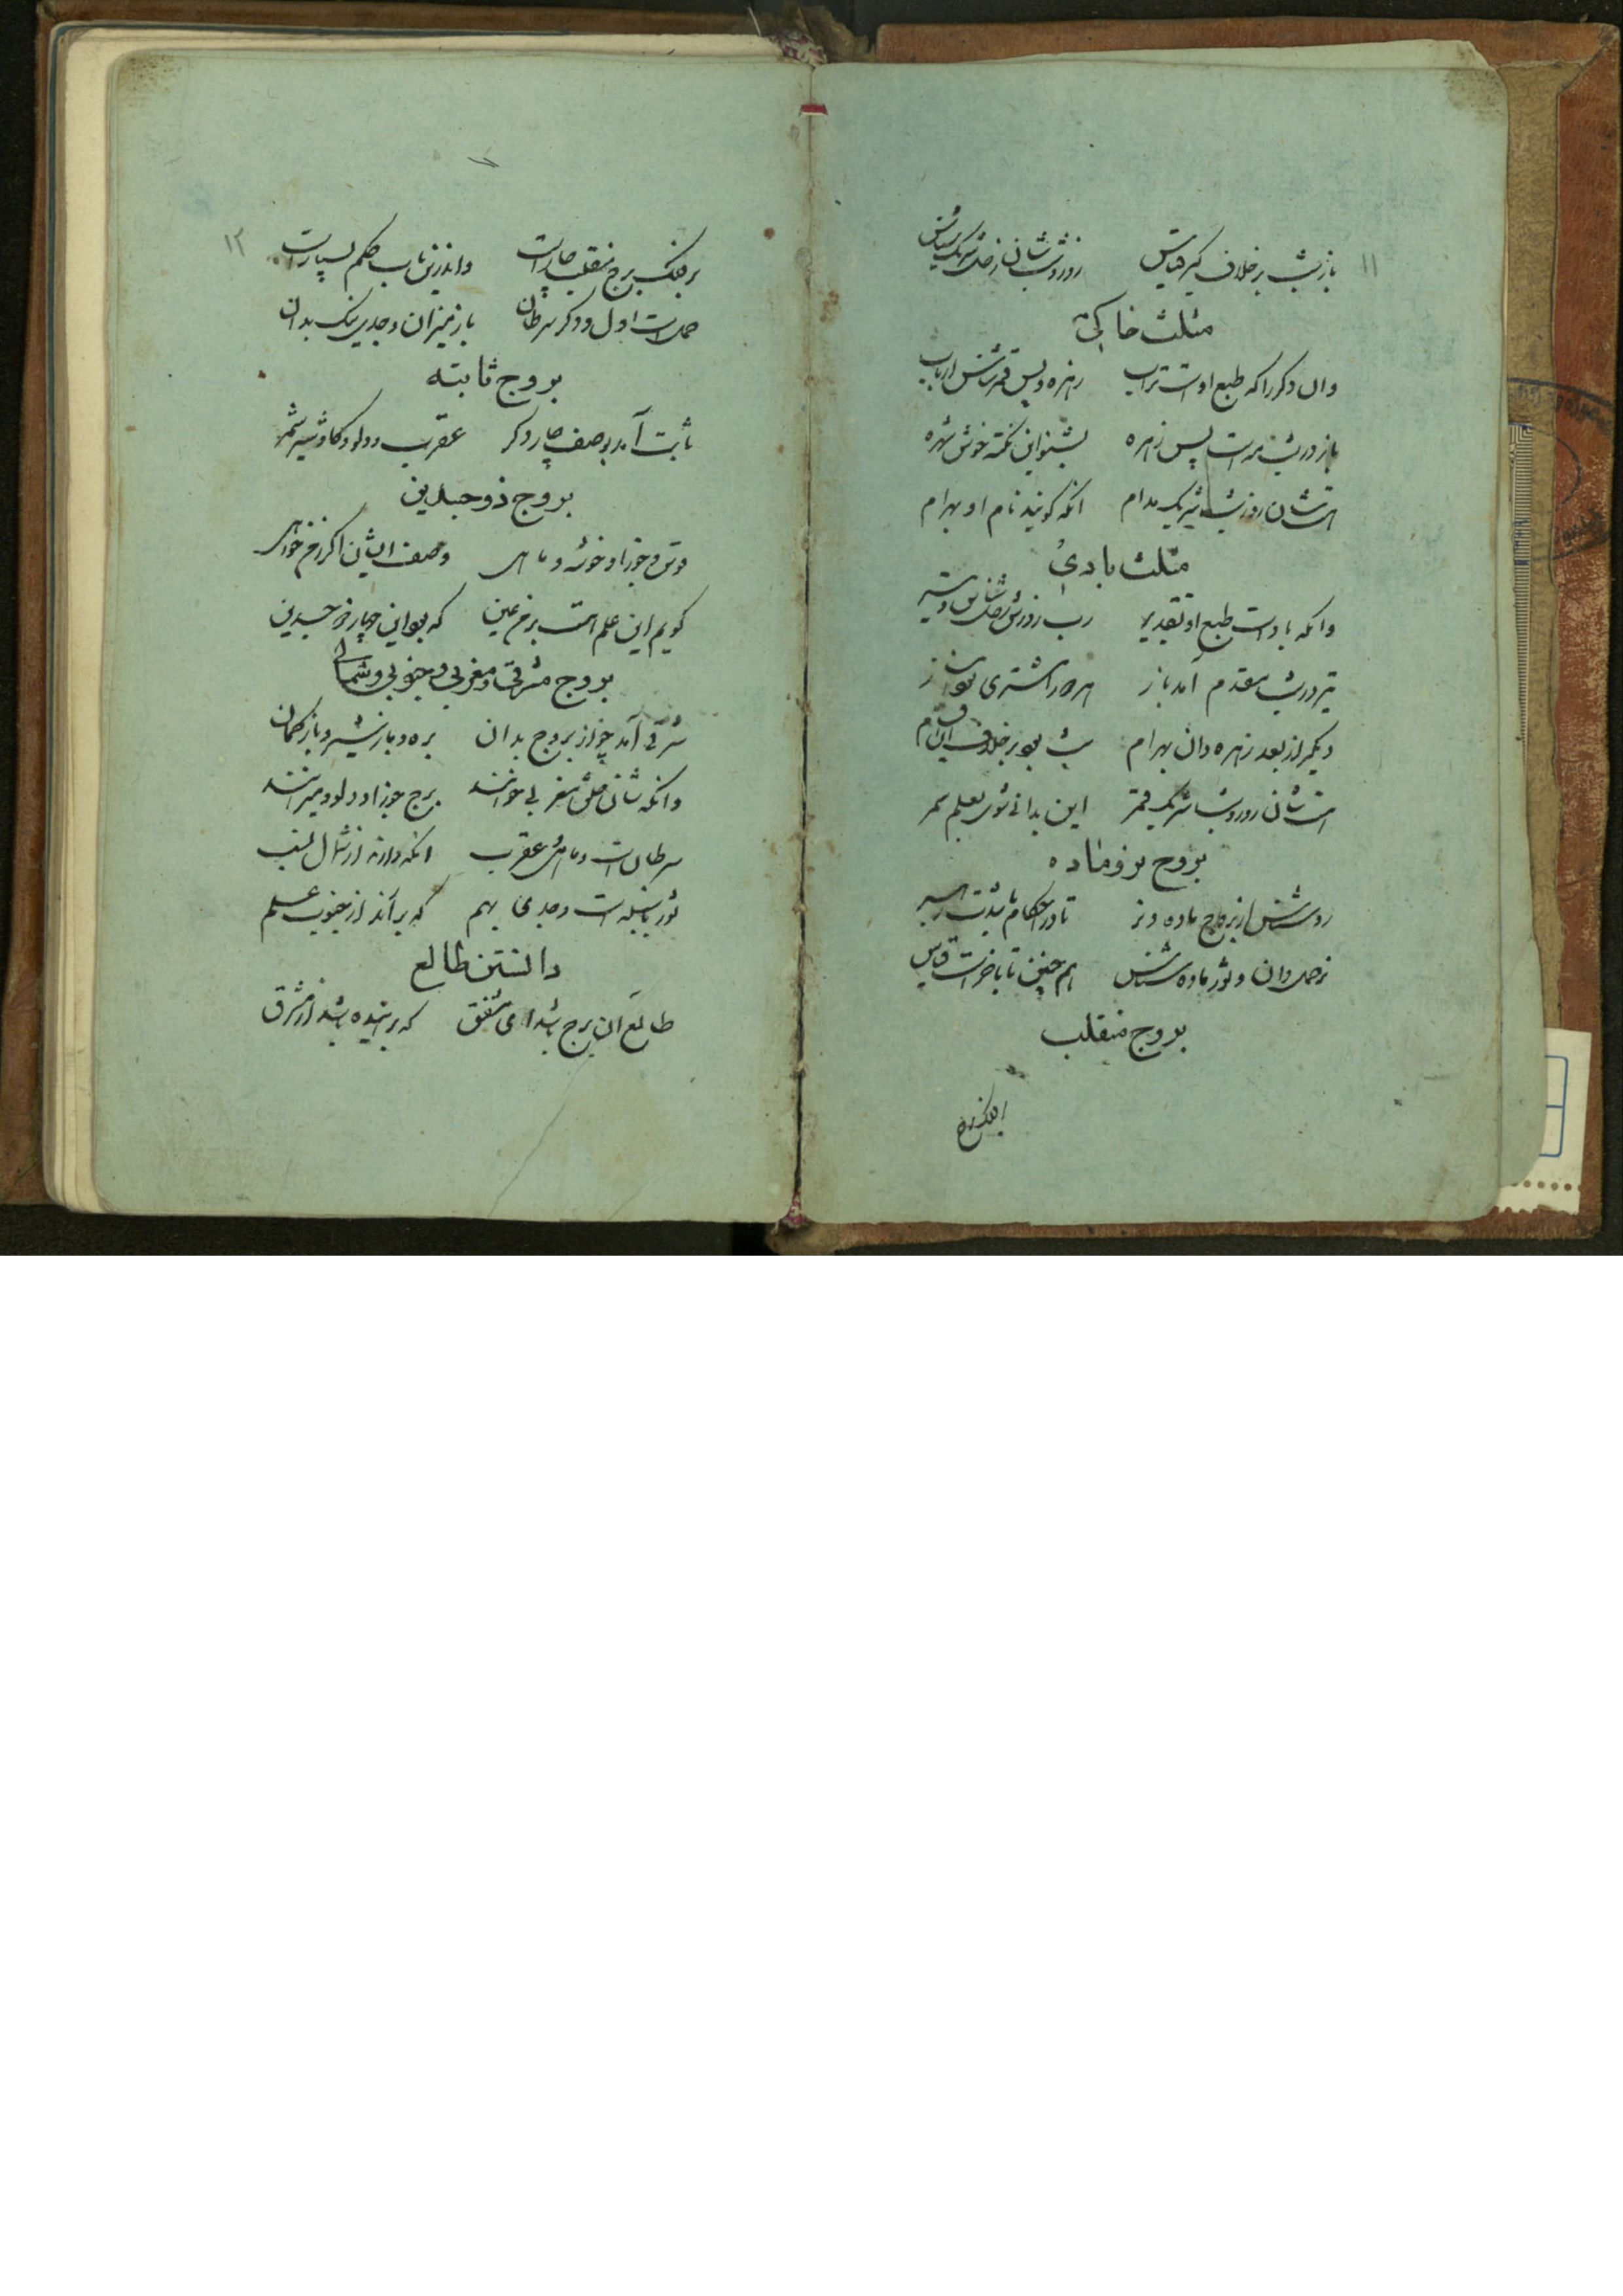 ۱۱
باز شب بر خلاف گیر قیاس روز و شب شان زحل شریک شناس
مثلث خاکی
وان دکر را که طبع اوست تراب زهره و پس قمر شش ارباب
باز در شب مه است پس زهره بشنو این نکته خوش شهره
هست شان روز و شب شریک مدام انکه کویند نام او بهرام
مثلث بادی
وانکه باد است طبع او تقدیر رب روزش زحل شناس و تیر
تیر در شب مقدم آمد باز مشتری
دیکر از بعد زهره دان بهرام شب بود بر خلاف این
هست شان روز و شب شریک قمر این بدانی شوی بعلم سمر
بروج نر و ماده
رو شناس از بروج ماده و نر تا در احکام باشدت رهبر
نر حمل دان و ثور ماده شناس هم چنین تا باخر است قیاس
بروج منقلب
بر فلک برج
۱۲
بر فلک برج منقلب چار است واندرین باب حکم بسیار است
حمل است اول و دکر سرطان باز میزان و جدی نیک بدان
بروج ثابته
ثابت آمد بوصف چار دکر عقرب و دلو و کاو و شیر شمر
بروج ذوجسدین
قوس و جوزا و خوشه و ماهی وصف ایشان اکر ز من خواهی
کویم این علم هست بر من عین که بود این چهار ذو جسدین
بروج مشرقی و مغربی و جنوبی و شمالی
شرقی آمد چو از بروج بدان بره و باز شیر و باز کمان
وانکه شان خلق مغربی خوانند برج جوزا و دلو و میزانند
سرطان است و ماهی و عقرب انکه دارند از شمال نسب
ثور با سنبله است و جدی بهم که برآند از جنوب علم
دانستن طالع
طالع آن برج باشد ای مشفق که بر اینده باشد از مشرق